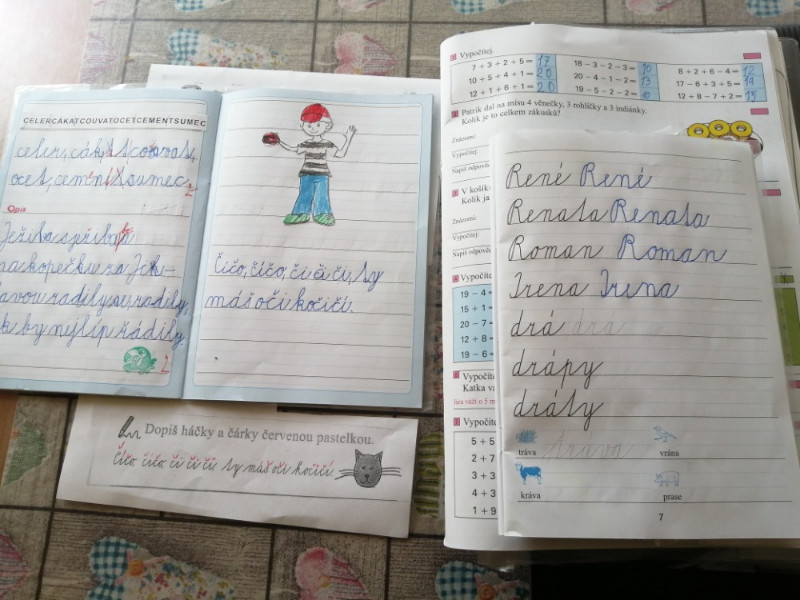 CELERCAKATCOUVATOCETCEMENTSUMEC
celer, cák, t couvat,
ocet, cement sumec.
Opis
Ježibaspřiby
na kopečku za Jch-
lavou radily se, radily,
k by nejlíp řádily.
Číčo, číčo, či či či, ty
máš oči kočičí.
Dopiš háčky a čárky červenou pastelkou.
Číčo, číčo, či či či, ty máš oči kočičí.
Vypočítej.
7 + 3 + 2 + 5 = 17
10 + 5 + 4 + 1 = 20
12 + 1 + 6 + 1 = 20
18 − 3 − 2 − 3 = 10
20 − 4 − 1 − 2 = 13
19 − 5 − 2 − 2 = 10
8 + 2 + 6 − 4 = 12
17 − 6 + 3 + 5 = 19
12 + 8 − 7 + 2 = 15
Patrik dal na mísu 4 věnečky, 3 rohlíčky a 3 indiánky.
Kolik je to celkem zákusků?
Znázorni:
Vypočítej:
Napiš odpověď
V košík
Kolik ja
Znázorni:
Vypočítej:
Napiš odpově
Vypočíte
19 − 4 =
15 + 1 =
20 − 7 =
12 + 8 =
19 − 6 =
Vypočíte
Katka vá
Vypočíte
5 + 5
2 + 7
3 + 3
4 + 3
1 + 9
René René
Renata Renata
Roman Roman
Irena Irena
drá drá
drápy
dráty
tráva tráva vrána
kráva prase
7